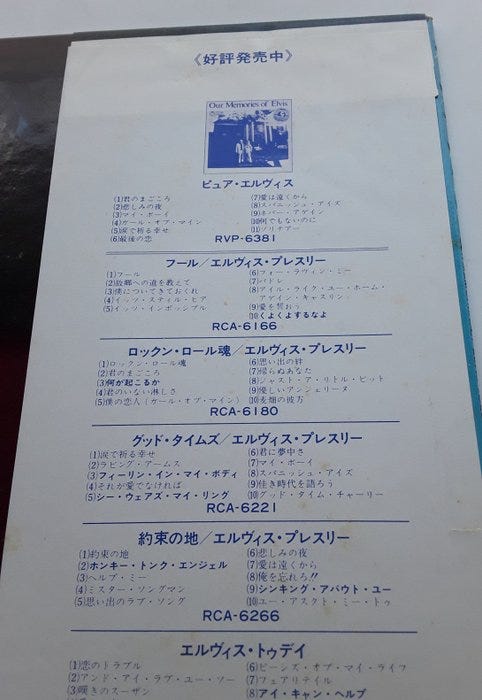 《好評発売中》
Our Memories of Elvis
ピュア・エルヴィス
(1)君のまごころ
(2)悲しみの夜
(3)マイ・ボーイ
(4)ガール・オブ・マイン
(5)涙で祈る幸せ
(6)最後の恋
(7)愛は遠くから
(8)スパニッシュ・アイズ
(9)ネバー・アゲイン
(10)何でもないのに
(11)ソリテアー
RVP-6381
フール/エルヴィス・プレスリー
(1)フール
(2)故郷への道を教えて
(3)僕についてきておくれ
(4)イッツ・スティル・ヒア
(5)イッツ・インポッシブル
(6)フォー・ラヴィン・ミー
(7)パドレ
(8)アイル・ライク・ユー・ホーム・
アゲイン・キャスリン
(9)愛を誓おう
(10)くよくよするなよ
RCA-6166
ロックン・ロール魂/エルヴィス・プレスリー
(1)ロックン・ロール魂
(2)君のまごころ
(3)何が起こるか
(4)君のいない淋しさ
(5)僕の恋人(ガール・オブ・マイン)
(6)思い出の絆
(7)帰らぬあなた
(8)ジャスト・ア・リトル・ビット
(9)優しいアンジェリーヌ
(10)麦畑の彼方
RCA-6180
グッド・タイムズ/エルヴィス・プレスリー
(1)涙で祈る幸せ
(2)ラビング・アームス
(3)フィーリン・イン・マイ・ボディ
(4)それが愛でなければ
(5)シー・ウェアズ・マイ・リング
(6)君に夢中さ
(7)マイ・ボーイ
(8)スパニッシュ・アイズ
(9)佳き時代を語ろう
(10)グッド・タイム・チャーリー
RCA-6221
約束の地/エルヴィス・プレスリー
(1)約束の地
(2)ホンキー・トンク・エンジェル
(3)ヘルプ・ミー
(4)ミスター・ソングマン
(5)思い出のラブ・ソング
(6)悲しみの夜
(7)愛は遠くから
(8)俺を忘れろ!!
(9)シンキング・アバウト・ユー
(10)ユー・アスクト・ミー・トゥ
RCA-6266
エルヴィス・トゥデイ
(1)恋のトラブル
(2)アンド・アイ・ラブ・ユー・ソー
(3)嘆きのスーザン
(6)ピーシズ・オブ・マイ・ライフ
(7)フェアリテイル
(8)アイ・キャン・ヘルプ